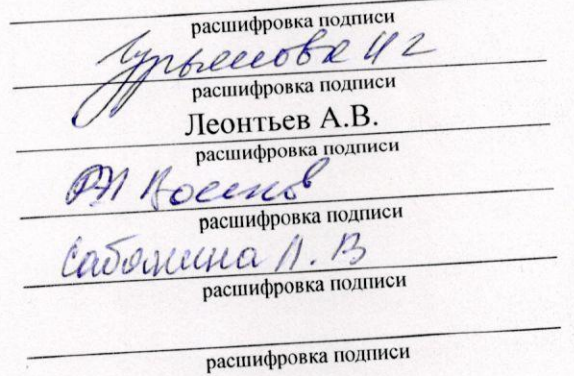 расшифровка подписи
Гурьянова И г
расшифровка подписи
Леонтьев А.В.
расшифровка подписи
расшифровка подписи
Л. В
расшифровка подписи
расшифровка подписи